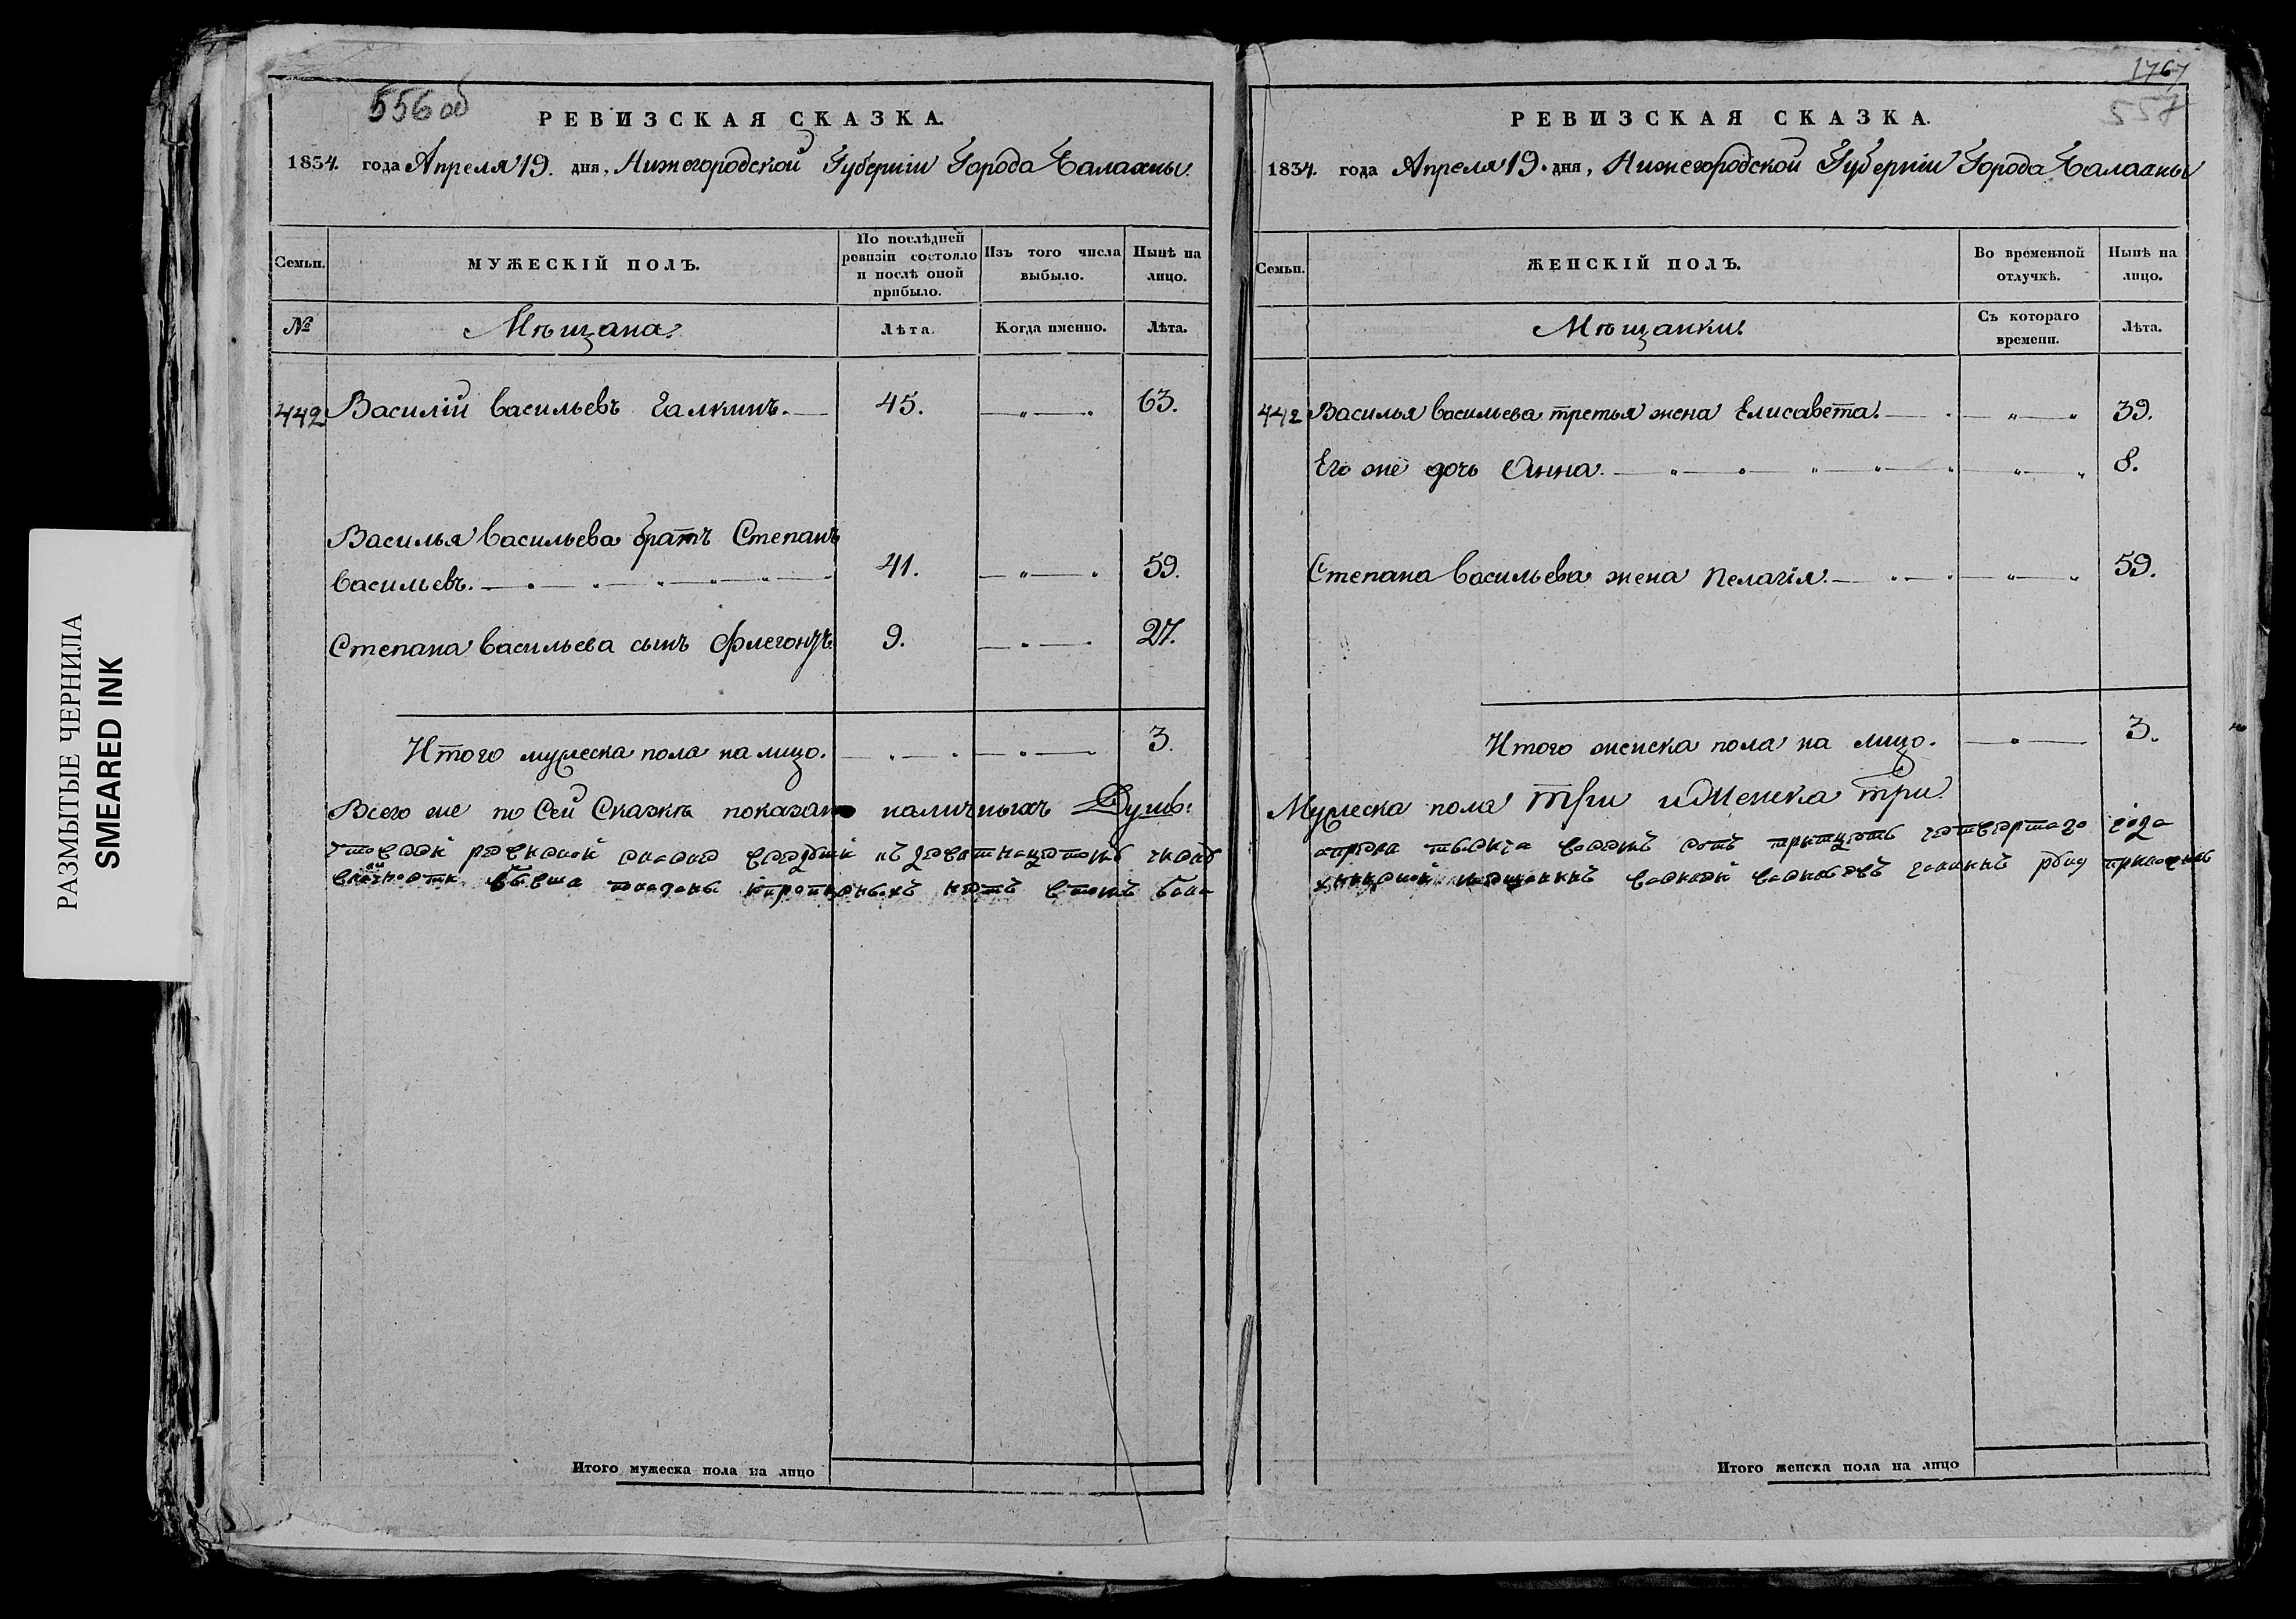 556 об
РЕВИЗСКАЯ СКАЗКА.
1834. года Апреля 19. дня, Нижегородской Губерніи Города Балахны.
Семьи.
МУЖЕСКІЙ ПОЛЪ.
По послѣдней ревизіи состояло и послѣ оной прибыло.
Изъ того числа выбыло.
Нынѣ на лицо.
№
Мѣщана.
Лѣта.
Когда именно.
Лѣта.
442 Василій Васильевъ Галкинъ. 45. 63.
Василья Васильева братъ Степанъ
Васильевъ. 41. 59.
Степана Васильева сынъ Флегонтъ 9. 27.
Итого мужеска пола на лицо. 3.
Всего же по Сей Сказкѣ показано наличныхъ Душъ:
Итого мужеска пола на лицо
1767
557
РЕВИЗСКАЯ СКАЗКА.
1834. года Апреля 19. дня, Нижегородской Губерніи Города Балахны
Семьи.
ЖЕНСКІЙ ПОЛЪ.
Во временной отлучкѣ.
Нынѣ на лицо.
Мѣщанки.
Съ котораго времени.
Лѣта.
442 Василья Васильева третья жена Елисавета. 39.
Его же дочь Анна. 8.
Степана Васильева жена Пелагія. 59.
Итого женска пола на лицо. 3.
Мужеска пола три и Женска три
тритцеть четвертаго года
Итого женска пола на лицо
РАЗМЫТЫЕ ЧЕРНИЛА
SMEARED INK